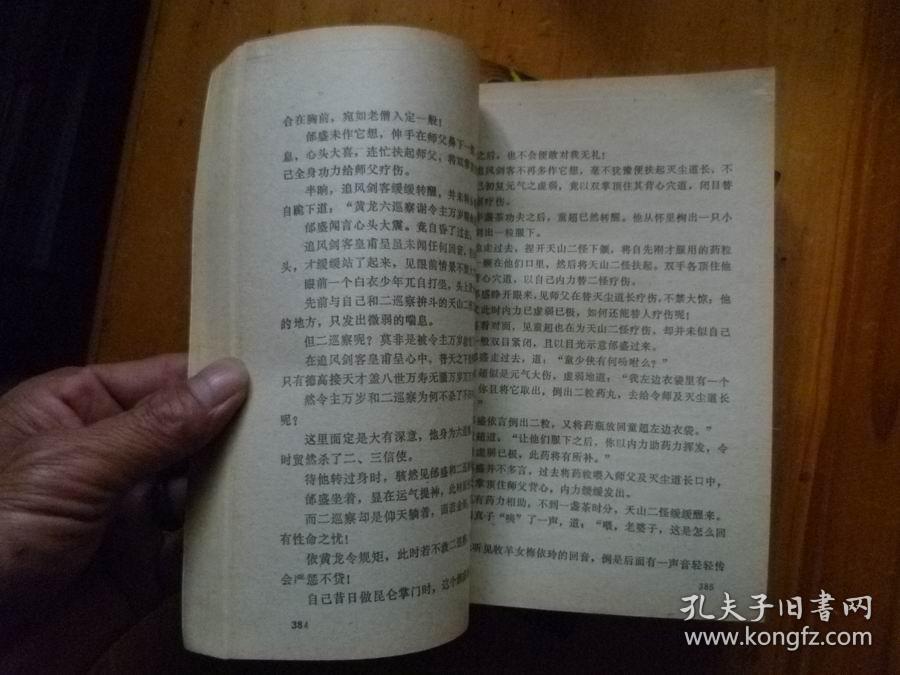 合在胸前，宛如老僧入定一般！
郤盛未作它想，伸手在师父鼻下一
息，心头大喜，连忙扶起师父，将双掌
己全身功力给师父疗伤。
半晌，追风剑客缓缓转醒，并未
自跪下道：“黄龙六巡察谢令主万岁
郤盛闻言心头大震。竟自昏了过去，
追风剑客皇甫呈虽未闻任何回音，
头，才缓缓站了起来，见眼前情景不
眼前一个白衣少年兀自打坐，头上
先前与自己和二巡察拚斗的天山二
的地方，只发出微弱的喘息。
但二巡察呢？莫非是被令主万岁
在追风剑客皇甫呈心中，普天之下
只有德高接天才盖八世万寿无疆万岁
然令主万岁和二巡察为何不杀了
呢？
这里面定是大有深意，他身为六巡
时贸然杀了二、三信使。
待他转过身时，骇然见郤盛和二
郤盛坐着，显在运气提神，此时
而二巡察却是仰天躺着，面淡金
有性命之忧！
依黄龙令规矩，此时若不救二巡
会严惩不贷！
自己昔日做昆仑掌门时，这个
384
之后，也不会便敢对我无礼！
追风剑客不再多作它想，毫不犹豫便扶起灭尘道长，不
己初复元气之虚弱，竟以双掌顶住其背心穴道，闭目替
疗伤。
盏茶功夫之后，童超已然转醒。他从怀里掏出一只小
倒出一粒服下。
走过去，捏开天山二怪下颔，将自先刚才服用的药粒
一颗在他们口里，然后将天山二怪扶起。双手各顶住他
背心穴道，以自己内力替二怪疗伤。
盛睁开眼来，见师父在替灭尘道长疗伤，不禁大惊：他
此时内力已虚弱已极，如何还能替人疗伤呢！
看对面，见童超也在为天山二怪疗伤，却并未似自己
一般双目紧闭，且以目光示意郤盛过来。
盛走过去，道：“童少侠有何吩咐么？”
超似是元气大伤，虚弱地道：“我左边衣袋里有一个
你且将它取出，倒出二粒药丸，去给令师及灭尘道长
”
盛依言倒出二粒，又将药瓶放回童超左边衣袋。”
超道：“让他们服下之后，你以内力助药力挥发，令
虚弱已极，此药将有所补。”
盛并不多言，过去将药粒喂入师父及灭尘道长口中，
掌顶住师父背心，内力缓缓发出。
有药力相助，不到一盏茶时分，天山二怪缓缓醒来。
真子“咦”了一声，道：“喂，老婆子，这是怎么回
听见牧羊女梅依玲的回音，倒是后面有一声音轻轻传
385
孔夫子旧书网
www.kongfz.com